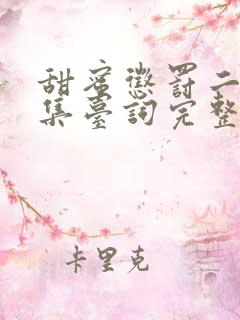 甜蜜懲罰二
集臺詞完整
卡里克